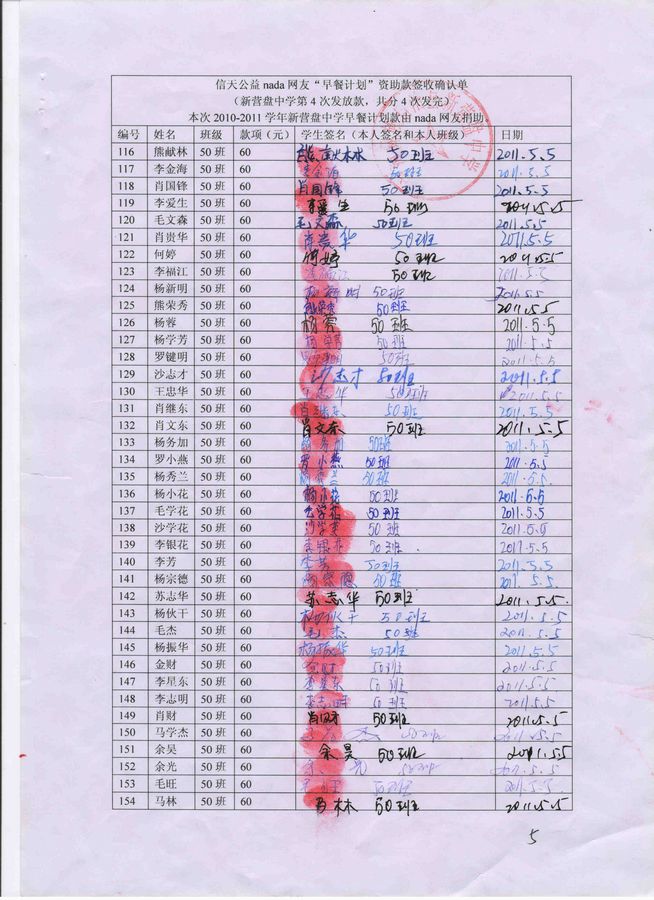 信天公益 nada 网友“早餐计划”资助款签收确认单
（新营盘中学第 4 次发放款，共分 4 次发完）
本次 2010-2011 学年新营盘中学早餐计划款由 nada 网友捐助。
编号 姓名 班级 款项（元） 学生签名（本人签名和本人班级） 日期
116 熊献林 50 班 60 熊献林 50班 2011.5.5
117 李金海 50 班 60 50班 2011.5.5
118 肖国锋 50 班 60 肖国锋 50班 2011.5.5
119 李爱生 50 班 60 李爱生 50班 2011.5.5
120 毛文森 50 班 60 毛文森 50班 2011.5.5
121 肖贵华 50 班 60 肖贵华 50班 2011.5.5
122 何婷 50 班 60 何婷 50班 2011.5.5
123 李福江 50 班 60 50班 2011.5.5
124 杨新明 50 班 60 杨新明 50班 2011.5.5
125 熊荣秀 50 班 60 50班 2011.5.5
126 杨蓉 50 班 60 杨蓉 50班 2011.5.5
127 杨学芳 50 班 60 杨学芳 50班 2011.5.5
128 罗键明 50 班 60 50班 2011.5.5
129 沙志才 50 班 60 沙志才 50班 2011.5.5
130 王忠华 50 班 60 王志华 50班 2011.5.5
131 肖继东 50 班 60 肖继东 50班 2011.5.5
132 肖文东 50 班 60 肖文东 50班 2011.5.5
133 杨务加 50 班 60 50班 2011.5.5
134 罗小燕 50 班 60 罗小燕 50班 2011.5.5
135 杨秀兰 50 班 60 50班 2011.5.5
136 杨小花 50 班 60 杨小花 50班 2011.5.5
137 毛学花 50 班 60 毛学花 50班 2011.5.5
138 沙学花 50 班 60 50班 2011.5.5
139 李银花 50 班 60 李银花 50班 2011.5.5
140 李芳 50 班 60 李芳 50班 2011.5.5
141 杨宗德 50 班 60 50班 2011.5.5
142 苏志华 50 班 60 苏志华 50班 2011.5.5.
143 杨伙干 50 班 60 杨伙干 50班 2011.5.5
144 毛杰 50 班 60 毛杰 50班 2011.5.5
145 杨振华 50 班 60 杨振华 50班 2011.5.5
146 金财 50 班 60 金财 50班 2011.5.5
147 李星东 50 班 60 李星东 50班 2011.5.5
148 李志明 50 班 60 李志明 50班 2011.5.5
149 肖财 50 班 60 肖财 50班 2011.5.5
150 马学杰 50 班 60 50班 2011.5.5
151 余昊 50 班 60 余昊 50班 2011.5.5
152 余光 50 班 60 余光 50班 2011.5.5
153 毛旺 50 班 60 50班 2011.5.5
154 马林 50 班 60 马林 50班 2011.5.5
5